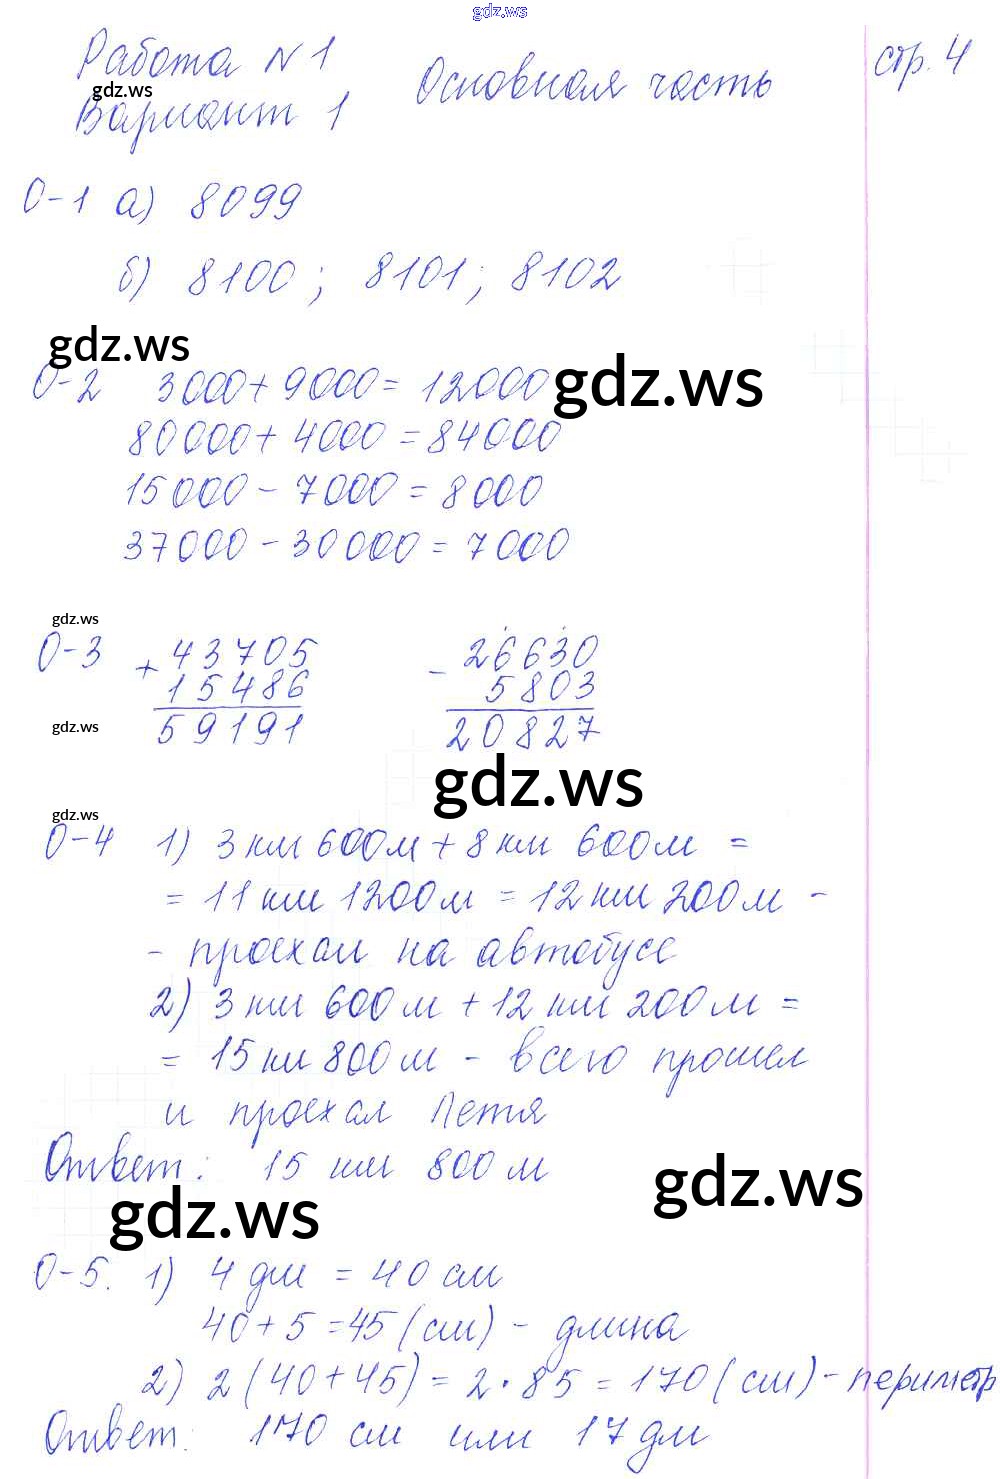 gdz.ws
Работа N 1 Основная часть стр. 4
gdz.ws
Вариант 1
О-1 а) 8099
б) 8100 ; 8101 ; 8102
gdz.ws
О-2 3000 + 9000 = 12000
gdz.ws
80000 + 4000 = 84000
15000 - 7000 = 8000
37000 - 30000 = 7000
gdz.ws
О-3 + 43705 - 26630
15486 5803
gdz.ws
59191 20827
gdz.ws
gdz.ws
О-4 1) 3 км 600 м + 8 км 600 м =
= 11 км 1200 м = 12 км 200 м -
- проехал на автобусе
2) 3 км 600 м + 12 км 200 м =
= 15 км 800 м - всего прошел
и проехал Петя
Ответ: 15 км 800 м
gdz.ws
gdz.ws
О-5. 1) 4 дм = 40 см
40 + 5 = 45 (см) - длина
2) 2 (40 + 45) = 2 · 85 = 170 (см) - периметр
Ответ: 170 см или 17 дм